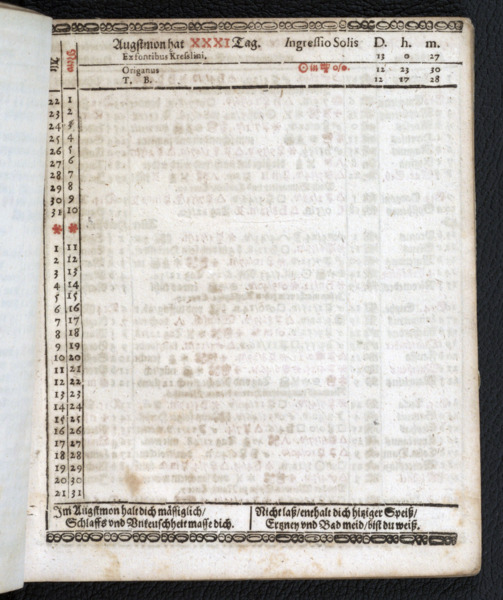 Augstmon hat XXXI Tag. Ingressio Solis D. h. m.
Ex fontibus Kreslini, 13 0 27
Origanus ☉ in ♍ 0/0. 12 23 30
T. B. 12 17 28
22 1
23 2
24 3
25 4
26 5
27 6
28 7
29 8
30 9
31 10
* *
1 11
2 12
3 13
4 14
5 15
6 16
7 17
8 18
9 19
10 20
11 21
12 22
13 23
14 24
15 25
16 26
17 27
18 28
19 29
20 30
21 31
Im Augstmon halt dich mässiglich/
Schlaffs vnd Vnkeuschheit masse dich.
Nicht laß/enthalt dich hitziger Speiß/
Ertzney vnd Bad meid/bist du weiß.